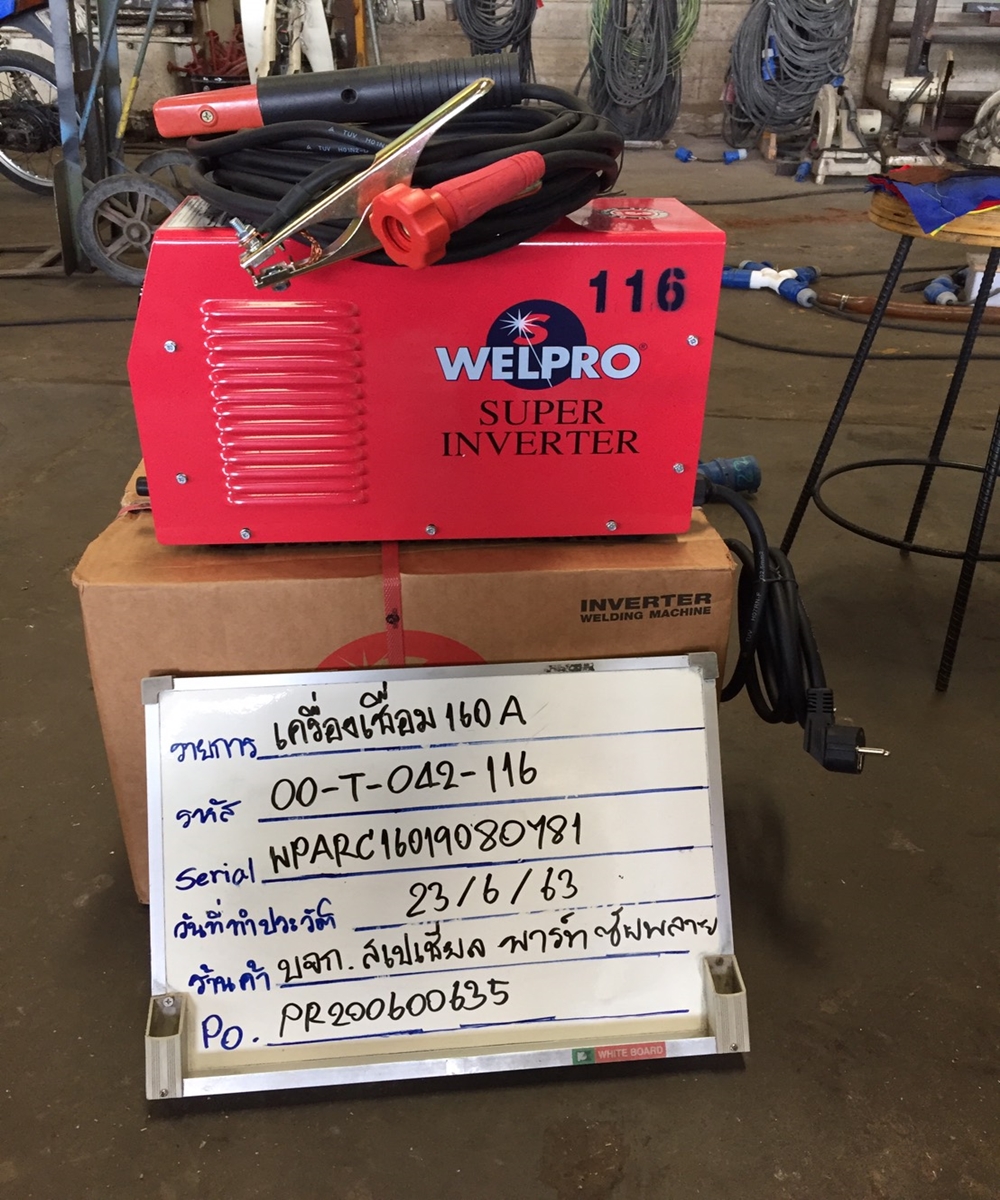 116
S
WELPRO®
SUPER
INVERTER
INVERTER
WELDING MACHINE
รายการ เครื่องเชื่อม 160 A
รหัส 00-T-042-116
Serial WPARC16019080781
วันที่ทำประวัติ 23/6/63
ร้านค้า บจก. สเปเชียล พาร์ท ซัพพลาย
PO. PR200600635
WHITE BOARD